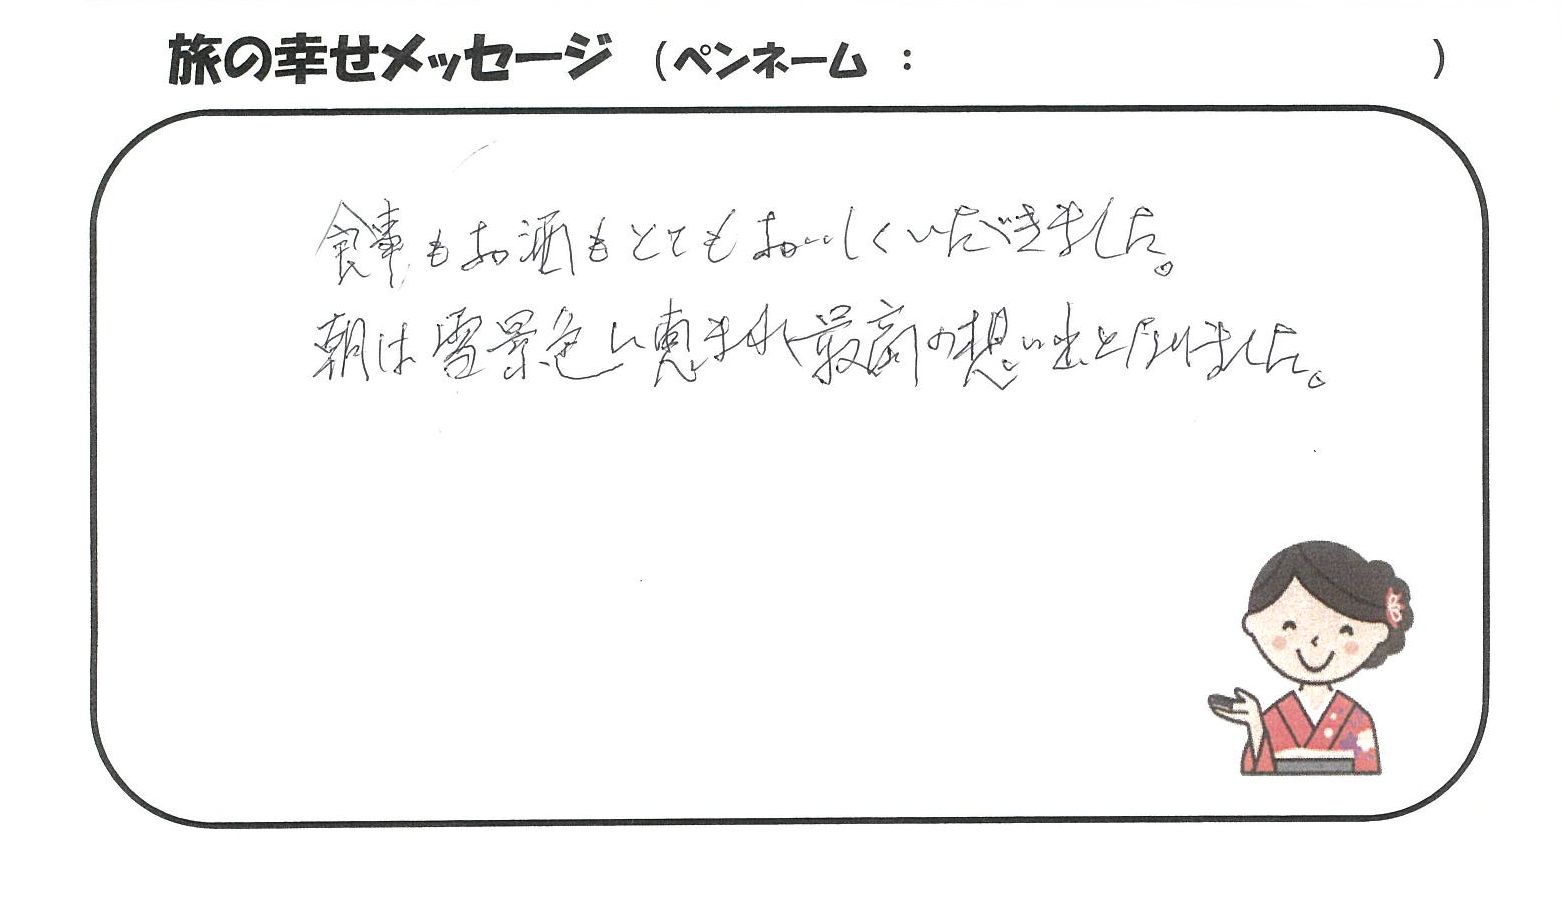 旅の幸せメッセージ （ペンネーム ： ）
食事もお酒もとてもおいしくいただきました。
朝は雪景色に恵まれ最高の想い出となりました。